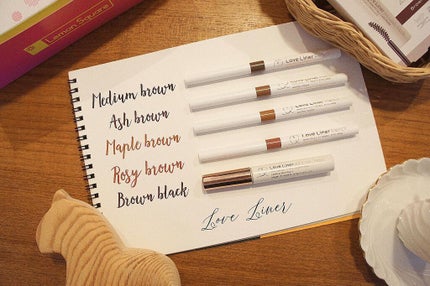 Lemon Square
Medium brown
Ash brown
Maple brown
Rosy brown
Brown black
Love Liner
Love Liner
Love Liner
Love Liner
Love Liner
Love Liner